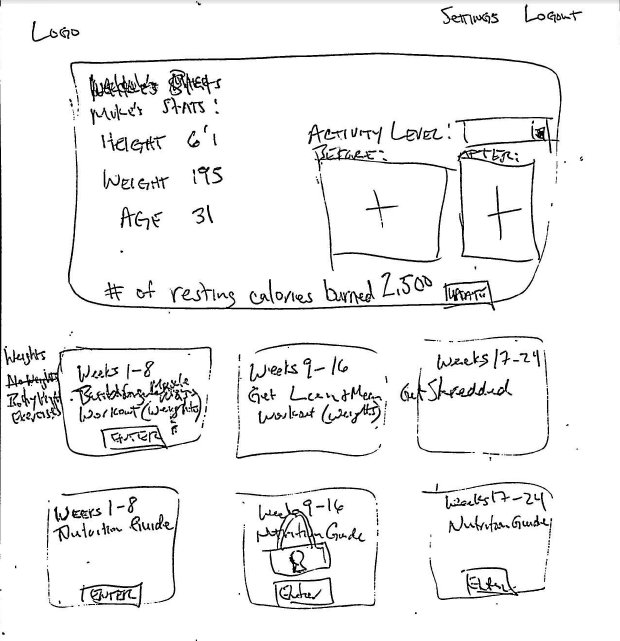 Settings Logout
Logo
Mike's Stats:
Height 6'1
Weight 195
Age 31
Activity Level:
Before: After:
# of resting calories burned 2,500 Update
Weights
Bodyweight
Exercises
Weeks 1-8
Building Muscle
Workout (Weights)
ENTER
Weeks 9-16
Get Lean & Mean
Workout (Weights)
Weeks 17-24
Get Shredded
Weeks 1-8
Nutrition Guide
ENTER
Weeks 9-16
Nutrition Guide
Enter
Weeks 17-24
Nutrition Guide
Enter